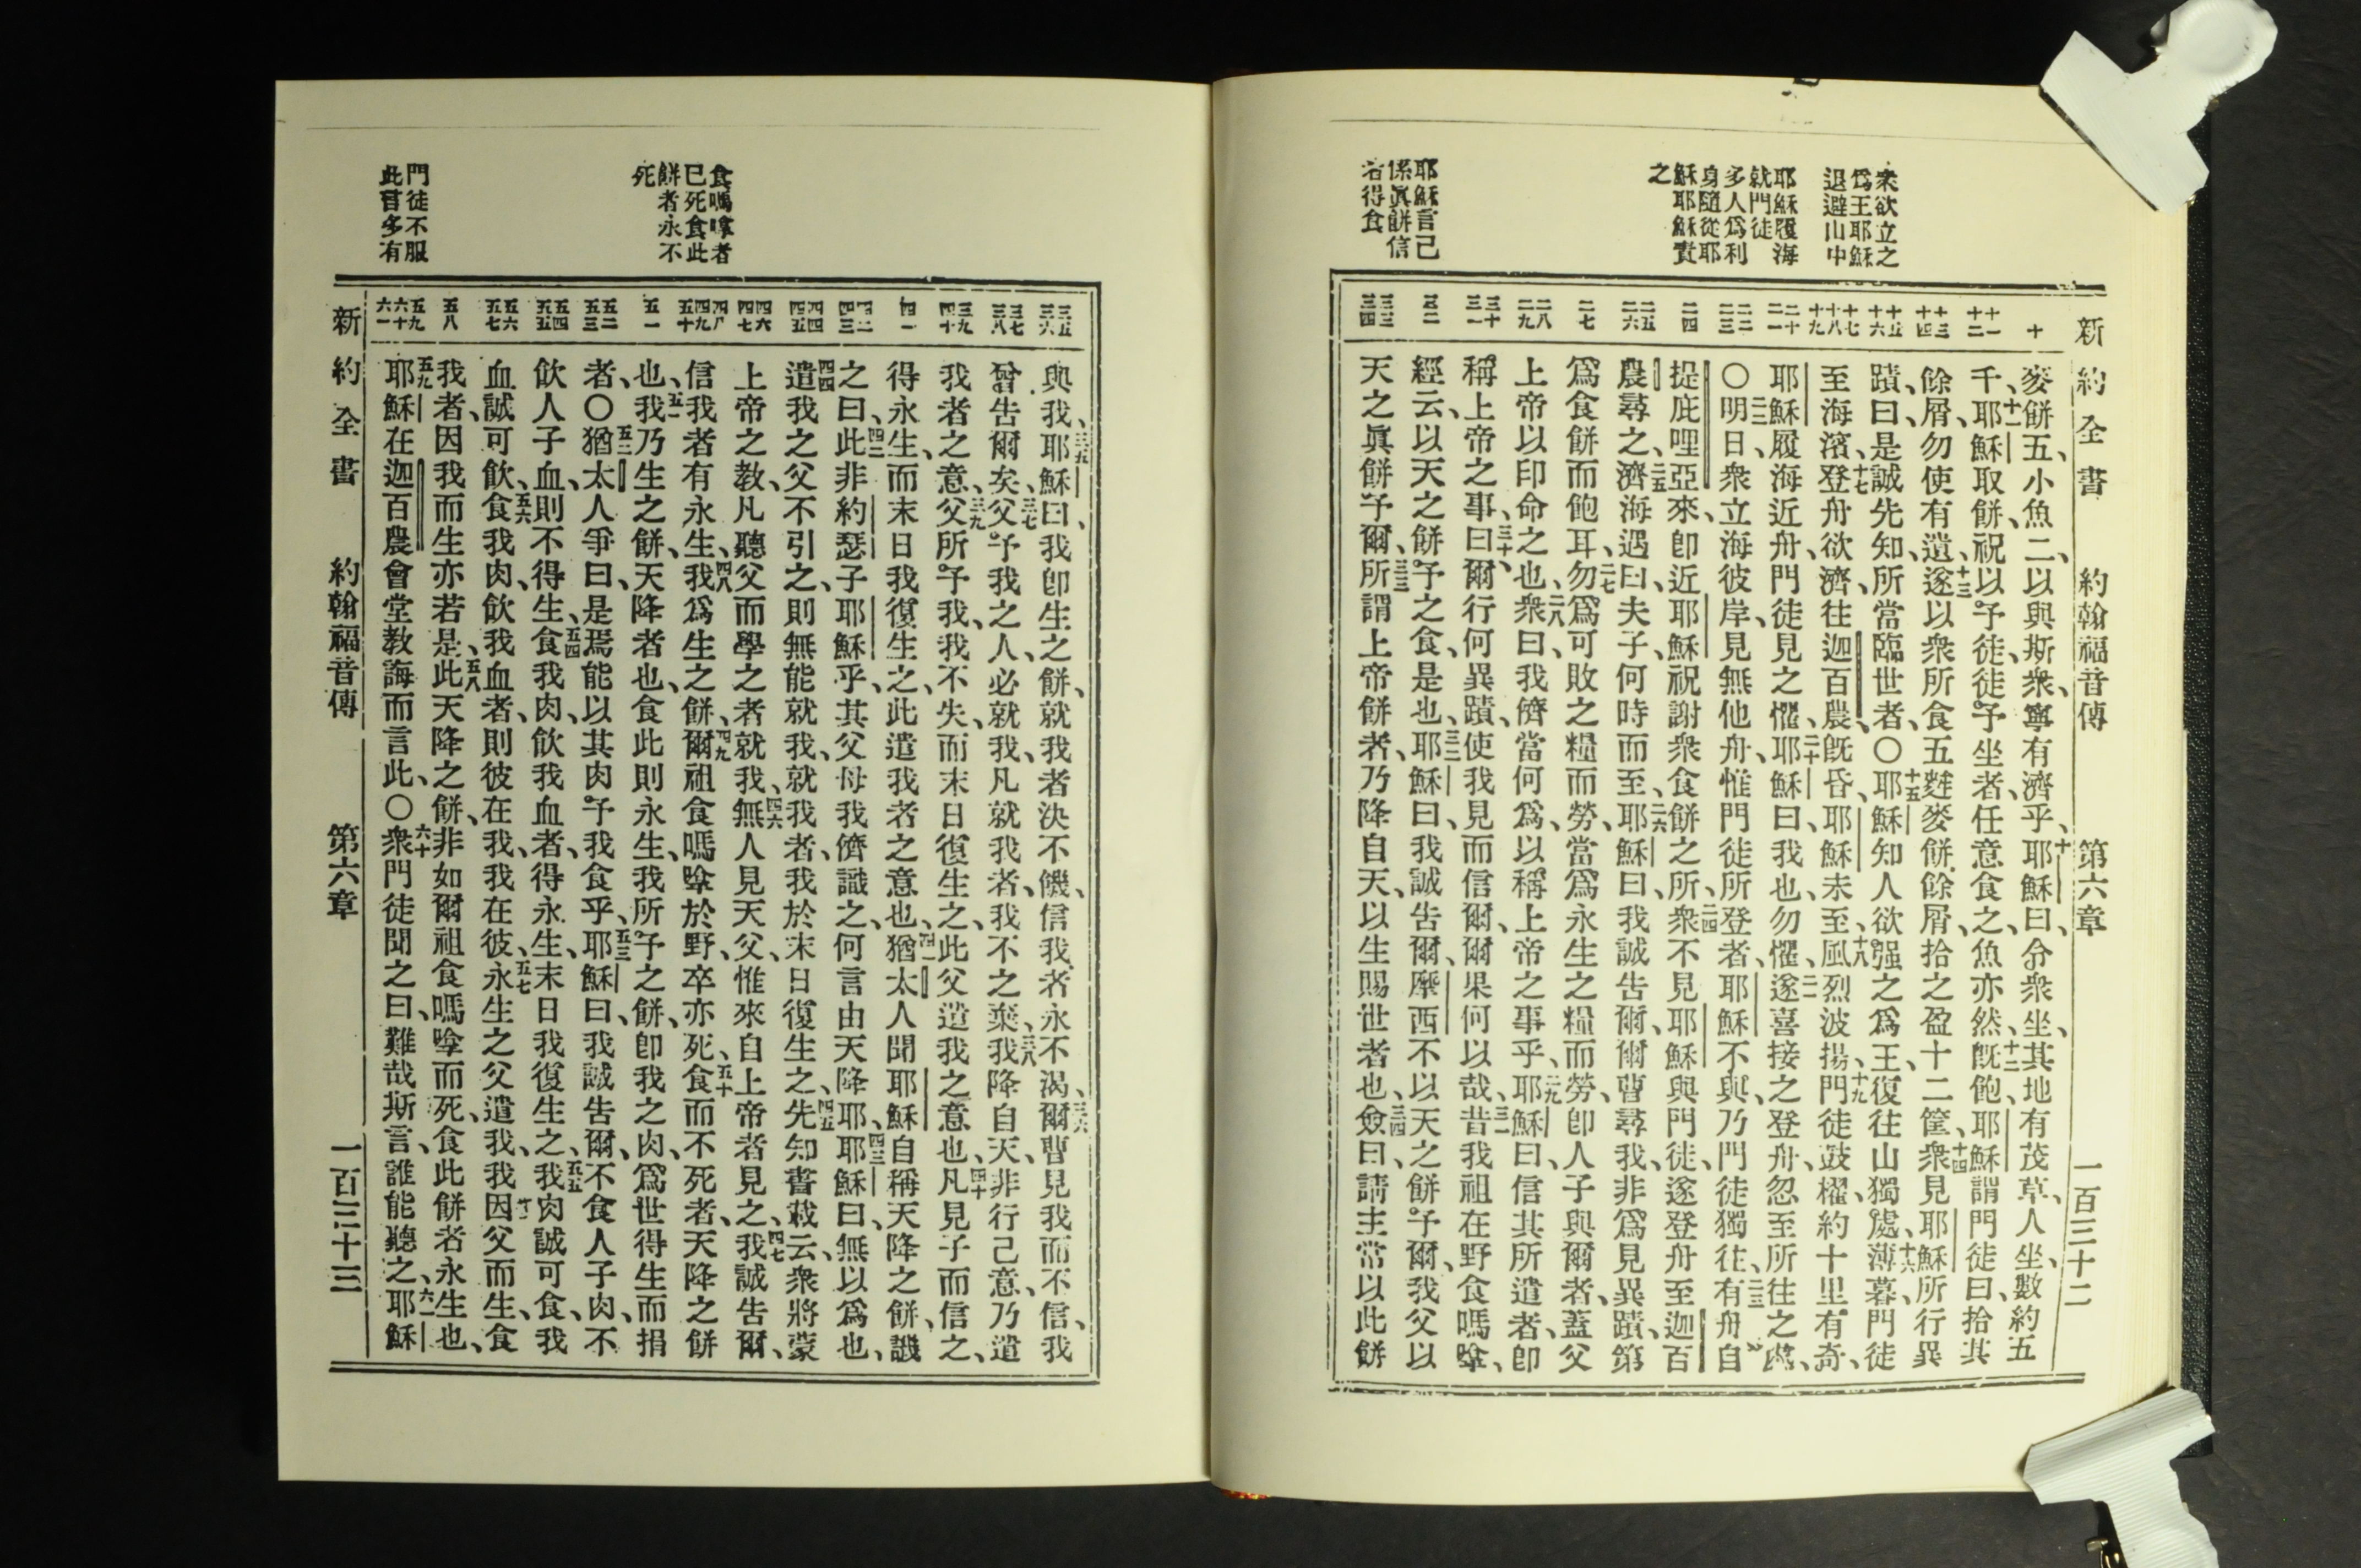 新約全書 約翰福音傳 第六章 一百三十二
衆欲立之
爲王耶穌
退避山中
耶穌履海
就門徒
多人爲利
身隨從耶
穌耶穌責
之
耶穌言己
係眞餅信
者得食
十
十一
十二
十三
十四
十五
十六
十七
十八
十九
二十
二一
二二
二三
二四
二五
二六
二七
二八
二九
三十
三一
三二
三三
三四
麥餅五、小魚二、以與斯衆、寧有濟乎、十耶穌曰、令衆坐、其地有茂草、人坐、數約五
千、十一耶穌取餅、祝以予徒、徒予坐者、任意食之、魚亦然、十二旣飽、耶穌謂門徒曰、拾其
餘屑、勿使有遺、十三遂以衆所食五麰麥餅餘屑、拾之盈十二筐、十四衆見耶穌所行異
蹟、曰、是誠先知、所當臨世者、〇十五耶穌知人欲强之爲王、復往山獨處、十六薄暮、門徒
至海濱、十七登舟欲濟、往迦百農、旣昏、耶穌未至、十八風烈波揚、十九門徒鼓櫂、約十里有奇、
耶穌履海近舟、門徒見之懼、二十耶穌曰、我也、勿懼、二一遂喜接之登舟、忽至所往之處、
〇二二明日、衆立海彼岸、見無他舟、惟門徒所登者、耶穌不與、乃門徒獨往、二三有舟自
提庇哩亞來、卽近耶穌祝謝衆食餅之所、二四衆不見耶穌與門徒、遂登舟至迦百
農尋之、二五濟海遇曰、夫子、何時而至、二六耶穌曰、我誠告爾、爾曹尋我、非爲見異蹟、第
爲食餅而飽耳、二七勿爲可敗之糧而勞、當爲永生之糧而勞、卽人子與爾者、蓋父
上帝以印命之也、二八衆曰、我儕當何爲、以稱上帝之事乎、二九耶穌曰、信其所遣者、卽
稱上帝之事、三十曰、爾行何異蹟、使我見而信爾、爾果何以哉、三一昔我祖在野食嗎嗱、
經云、以天之餅予之食、是也、三二耶穌曰、我誠告爾、摩西不以天之餅予爾、我父以
天之眞餅予爾、三三所謂上帝餅者、乃降自天、以生賜世者也、三四僉曰、請主常以此餅
食嗎嗱者
已死食此
餅者永不
死
門徒不服
此言多有
三五
三六
三七
三八
三九
四十
四一
四二
四三
四四
四五
四六
四七
四八
四九
五十
五一
五二
五三
五四
五五
五六
五七
五八
五九
六十
六一
與我、三五耶穌曰、我卽生之餅、就我者決不饑、信我者、永不渴、三六爾曹見我而不信、我
曾告爾矣、三七父予我之人、必就我、凡就我者、我不之棄、三八我降自天、非行己意、乃遣
我者之意、三九父所予我、我不失、而末日復生之、此父遣我之意也、四十凡見子而信之、
得永生、而末日我復生之、此遣我者之意也、四一猶太人聞耶穌自稱天降之餅、譏
之曰、四二此非約瑟子耶穌乎、其父母我儕識之、何言由天降耶、四三耶穌曰、無以爲也、
四四遣我之父不引之、則無能就我、就我者、我於末日復生之、四五先知書載云、衆將蒙
上帝之敎、凡聽父而學之者就我、四六無人見天父、惟來自上帝者見之、四七我誠告爾、
信我者有永生、四八我爲生之餅、四九爾祖食嗎嗱於野、卒亦死、五十食而不死者、天降之餅
也、五一我乃生之餅、天降者也、食此則永生、我所予之餅、卽我之肉、爲世得生而捐
者、〇五二猶太人爭曰、是焉能以其肉予我食乎、五三耶穌曰、我誠告爾、不食人子肉、不
飲人子血、則不得生、五四食我肉、飲我血者、得永生、末日我復生之、五五我肉誠可食、我
血誠可飲、五六食我肉、飲我血者、則彼在我、我在彼、五七永生之父遣我、我因父而生、食
我者、因我而生亦若是、五八此天降之餅、非如爾祖食嗎嗱而死、食此餅者永生也、
五九耶穌在迦百農會堂敎誨而言此、〇六十衆門徒聞之曰、難哉斯言、誰能聽之、六一耶穌
新約全書 約翰福音傳 第六章 一百三十三